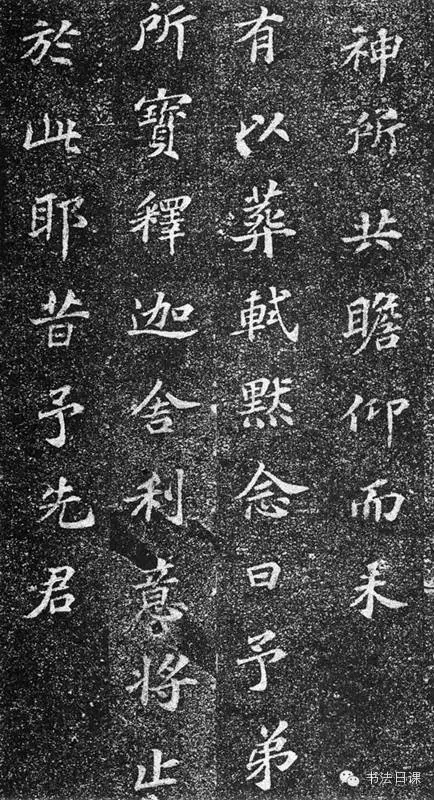 神所共瞻仰而未
有以葬軾默念曰予弟
所寶釋迦舍利意將止
於此耶昔予先君
书法日课